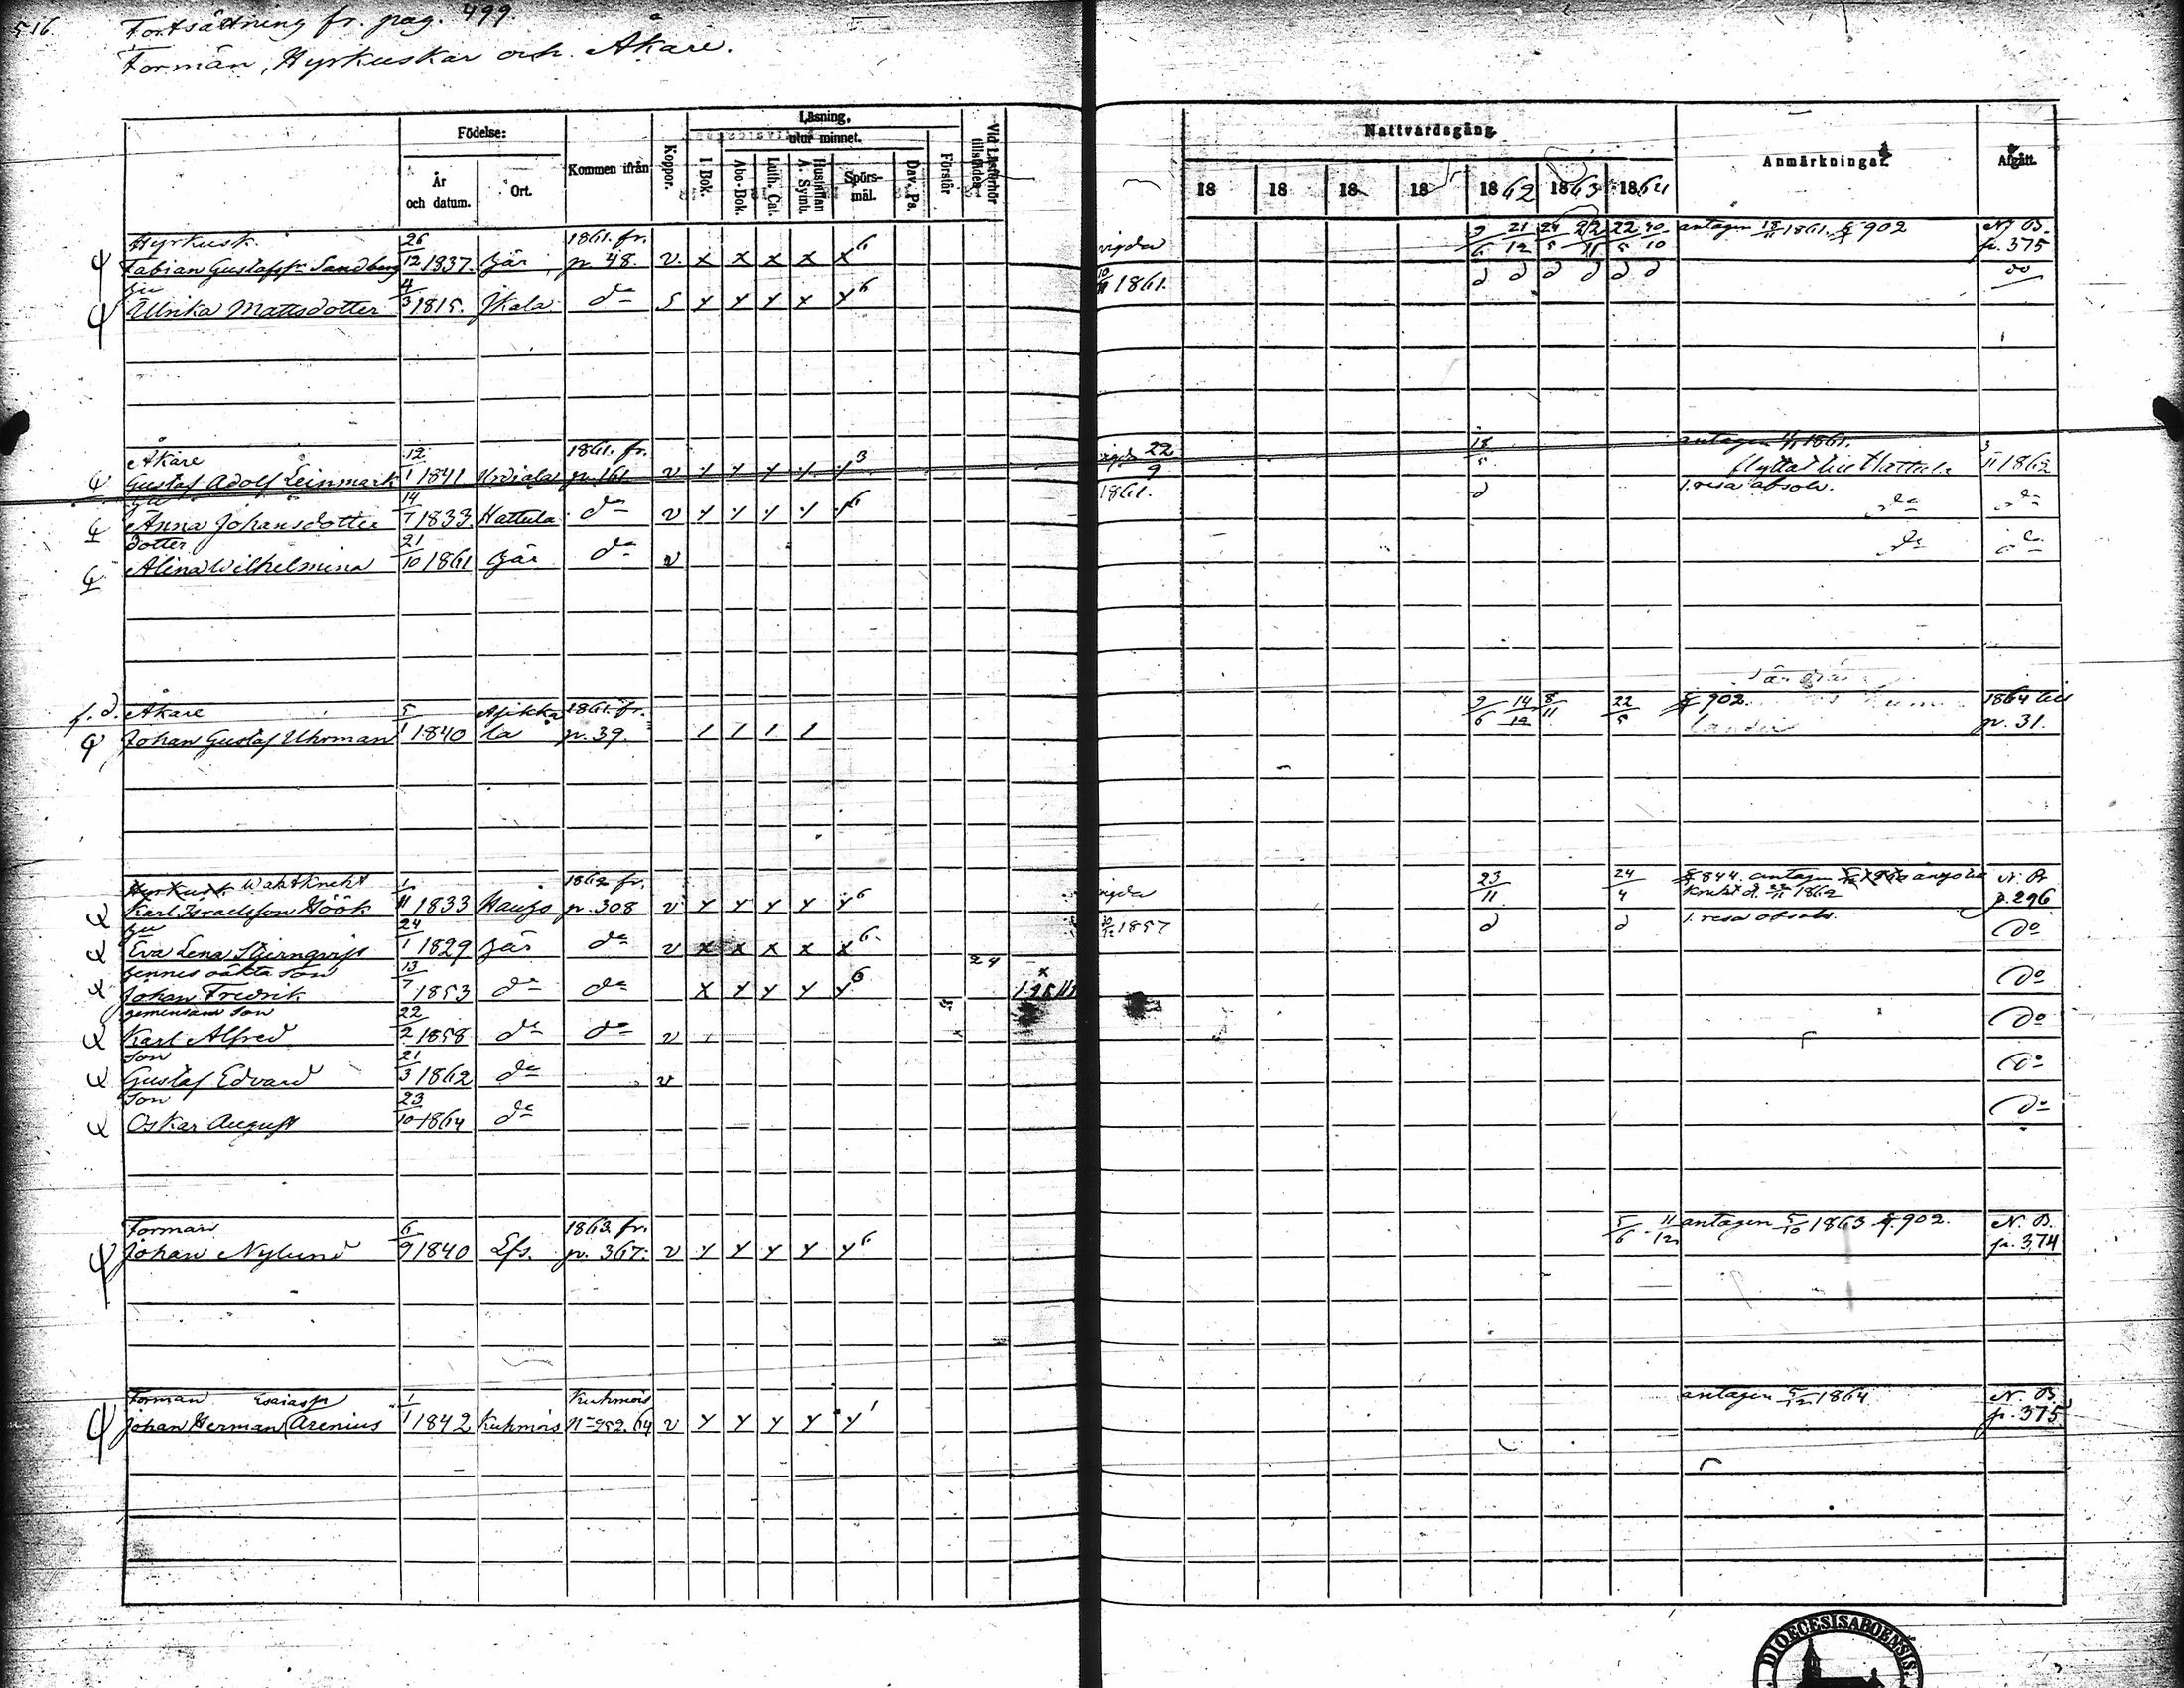 516.
Fortsättning fr. pag. 499.
Formän, Hyrkuskar och Åkare.
Födelse: År och datum. Ort. Kommen ifrån Koppor. Läsning. utur minnet. I Bok. Abc-Bok. Luth. Cat. Hustaflan A. Symb. Spörsmål. Dav. Ps. Förstår Vid Läseförhör tillstädes
Nattvardsgång. Anmärkningar. Afgått.
18 18 18 18 1862 1863 1864
Hyrkusk 26 1861. fr. 9/6 21/12 antagen 1861. § 902 N. B.
Fabian Gustafss. Sandberg 12 1837. Här p. 48. v. x x x x x6 vigda p. 375
Hu 4
Ulrika Mattsdotter 3 1815. Jkala do S y y y x y6 1861.
Åkare 12 1861. fr. vigda 22/9 antagen 1861. 3
Gustaf Adolf Leinmark 1 1841 Urdiala p. 161 v y y y y y3 flyttat till Hattula 11 1862
Hu 14 1861. 1. resa absolv.
Anna Johansdotter 7 1833. Hattula do v y y y y y6 do do
dotter 21
Alina Wilhelmina 10 1861 Här do v do do
f. d. Åkare 5 Asikka 1861. fr. 9/6 14/12 8/11 22/5 § 902. 1864 till
Johan Gustaf Uhrman 1 1840 la p. 39. / / / / p. 31.
Hyrkusk Waktknekt 1 1862 fr. vigda 23/11 24/4 § 844. antagen N. B.
Karl Israelsson Höök 11 1833 Haujo p. 308 v y y y y y6 1862 p. 296
Hu 24 1857 1. resa absolv.
Eva Lena Stiernqvist 1 1829 Här do v x x x x x6 do
Hennes oäkta Son 13
Johan Fredrik 7 1853 do do x y y y y6 do
gemensam Son 22
Karl Alfred 2 1858 do do v do
Son 21
Gustaf Edvard 3 1862 do v do
Son 23
Oskar August 10 1864 do do
Forman 6 1863. fr. 5/6 11/12 antagen 5/10 1863 § 902. N. B.
Johan Nylund 9 1840 Lfs. p. 367. v y y y y y6 p. 374
Forman Esaiasss 1 Kuhmois antagen 5/12 1864 N. B.
Johan Herman Arenius 1 1842 Kuhmois No 252. 64 v y y y y y1 p. 375
DIOECESIS ABOENSIS.